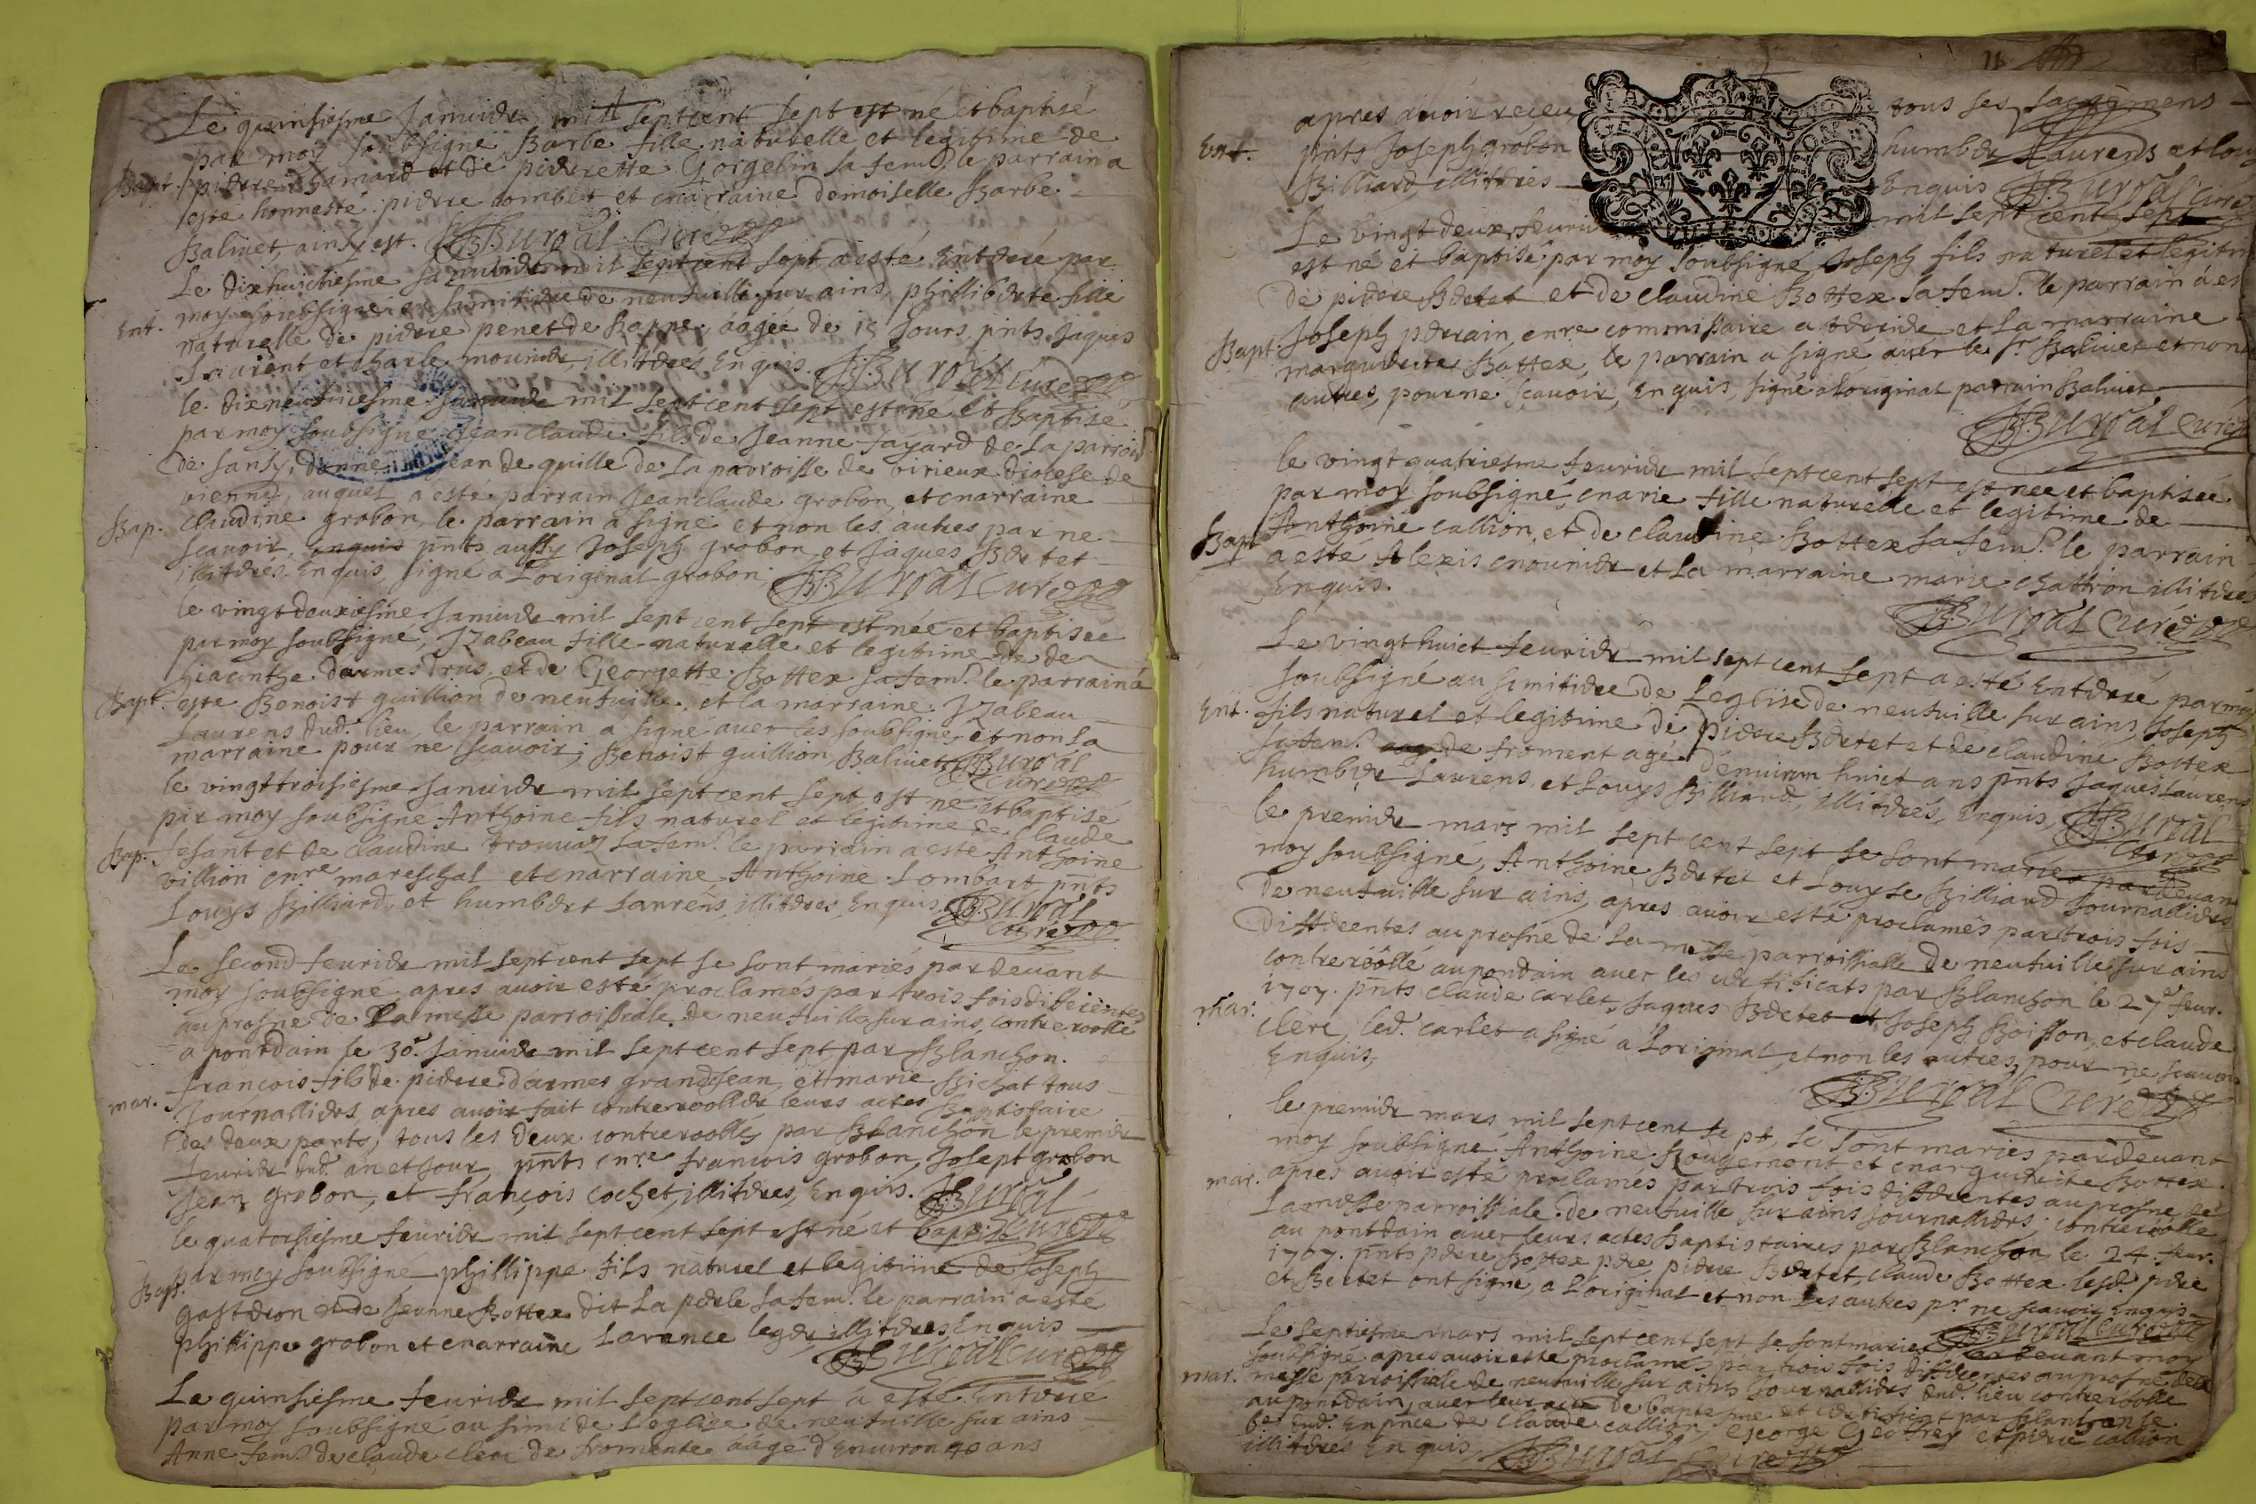 Le quinsiesme Januier mil septcent sept est né et baptisé
par moy soubsigné Barbe fille naturelle et legitime de
Bapt. pierre Ramard et de pierrette Gorgelin sa fem.e le parrain a
este honneste pierre combet et marraine demoiselle Barbe
Baliuet, ainsy est. BBuroal Curé
Le dixhuictiesme Januier mil septcent sept a esté Enterré par
Ent. moy soubsigné au simitiere de neufuille sur ains, phillib erte fille
naturelle de pierre penet de Bappe aagée de 15 Jours pnts Jaques
et charle mounier, illiteres Enquis. BBuroal Curé
le dixneufuiesme Januier mil septcent sept est né et Baptisé
par moy soubsigné Jean claude fils de Jeanne fayard de la parroisse
de sansy, donné a Jean de quille de la parroisse de virieux diocese de
vienne, auquel a esté parrain Jean claude grobon, et marraine
Bap. claudine grobon, le parrain a signé et non les autres par ne
scauoir, enquis pnts aussy Joseph grobon et Jaques Bertet
illiteres Enquis, signé a L'original grobon BBuroal Curé
le vingtdeuxiesme Januier mil sept cent sept est née et baptisée
par moy soubsigné, Izabeau fille naturelle et legitime de
hiacinthe darmes Drus, et de Georgette Bottex sa fem.e le parrain a
Bapt. este Benoist guillion de neufuille, et la marraine Izabeau
Laurens dud. lieu, le parrain a signé auec les soubsignés et non la
marraine pour ne scauoir; Benoist guillion Baliuet BBuroal
Curé
le vingttroisiesme Januier mil septcent sept est né et baptisé
par moy soubsigné Anthoine fils naturel et legitime de Claude
Bap. fesant et de claudine trouuaz sa fem.e le parrain a esté Anthoine
villion enre mareschal et marraine Anthoine Lombart pnts
Louys Billiard, et humbert Laurens, illiteres Enquis BBuroal
Curé
Le second feurier mil septcent sept se sont mariés pardeuant
moy soubsigné apres auoir esté proclamés par trois fois differentes
au prosne de La messe parroissiale de neufuille sur ains, contreroollé
a pontdain le 30e. Januier mil septcent sept par Blanchon.
francois fils de pierre darmes grandJean, et marie Bichat tous
mar. Journalliers apres auoir fait contrerooller leurs actes Baptistaire
des deux parts, tous les deux contreroollés par Blanchon le premier
feurier dud. an et jour, pnts enre francois grobon, Josept grobon
Jean grobon, et françois cochet, illiteres, Enquis. BBuroal
Curé
le quatorsiesme feurier mil septcent sept est né et bapt.
Bapt. par moy soubsigné phillippe fils naturel et legitime de Joseph
gastdron et de Jeanne Bottex dit La perle sa fem.e le parrain a esté
phillippe grobon et marraine Laurence leger illiteres Enquis
BBuroal Curé
Le quinsiesme feurier mil septcent sept a esté Enterré
par moy soubsigné au simi.e de L'eglize de neufuille sur ains
Anne fem.e de claude clerc de fromente aagé d'Enuiron 40 ans
11
apres auoir receu tous ses sacremens
Ent. pnts Joseph grobon humbert Laurens et Louys
Billiard, illiteres Enquis BBuroal Curé
Le vingtdeux feurier mil sept cent sept
est né et baptisé par moy soubsigné Joseph fils naturel et legitime
de pierre Bertet et de Claudine Bottex sa fem.e le parrain a esté
Bapt. Joseph perrain, enre commissaire a terrier et la marraine
marguerite Bottex, le parrain a signé auec le sr Baliuet et non les
autres, pour ne scauoir, Enquis, signé a l'original perrain Baliuet,
BBuroal Curé
le vingt quatriesme feurier mil septcent sept est née et baptisée
par moy soubsigné, marie fille naturelle et legitime de
Bapt Anthoine callion, et de claudine Bottex sa fem.e le parrain
a esté Alexis mounier et La marraine marie chattron illiteres
Enquis.
BBuroal Curé
Le vingthuict feurier mil sept cent sept a esté Enterré par moy
soubsigné au simitiere de L'eglise de neufuille sur ains, Joseph
Ent. fils naturel et legitime de pierre Bertet et de claudine Bottex
sa fem.e de froment agé d'enuiron huict ans pnts Jaques Laurens
humbert Laurens, et Louys Billiard, illiteres, Enquis, BBuroal
Curé
le premier mars mil sept cent sept se sont mariés pardeuant
moy soubsigné, Anthoine Bertet et Louyse Billiard Journalliers
de neufuille sur ains, apres auoir esté proclamés par trois fois
differentes au prosne de La messe parroissiale de neufuille sur ains
contreroollé au pondain auec les certificats par Blanchon le 27e feur.
mar. 1707. pnts claude carlet, Jaques Bertet et Joseph Boisson, et claude
clerc, led. carlet a signé a L'original, et non les autres, pour ne scauoir
Enquis,
BBuroal Curé
le premier mars mil septcent sept, se sont mariés pardeuant
moy soubsigné Anthoine Rougemont et marguerite Bottex
mar. apres auoir esté proclamés par trois fois differentes au prosne de
La messe parroissiale de neufuille sur ains Journalliers, contreroollé
au pontdain auec leurs actes Baptistaires par Blanchon le 24. feur.
1707. pnts pierre Bottex pere, pierre Bertet, claude Bottex lesd. pere
et Bertet ont signé, a L'original et non Les autres pr. ne scauoir Enquis
BBuroal Curé
Le septiesme mars mil septcent sept se sont mariés pardeuant moy
soubsigné apres auoir esté proclamés par trois fois differentes au prosne de la
mar. messe parroissiale de neufuille sur ains Journalliers dud. lieu contreroollé
au pontdain, auec leur acte de baptesme et certificat par Blanchon le
6e dud. En pnce de Claude callion, George Geoffrey et pierre callion
illiteres Enquis BBuroal Curé